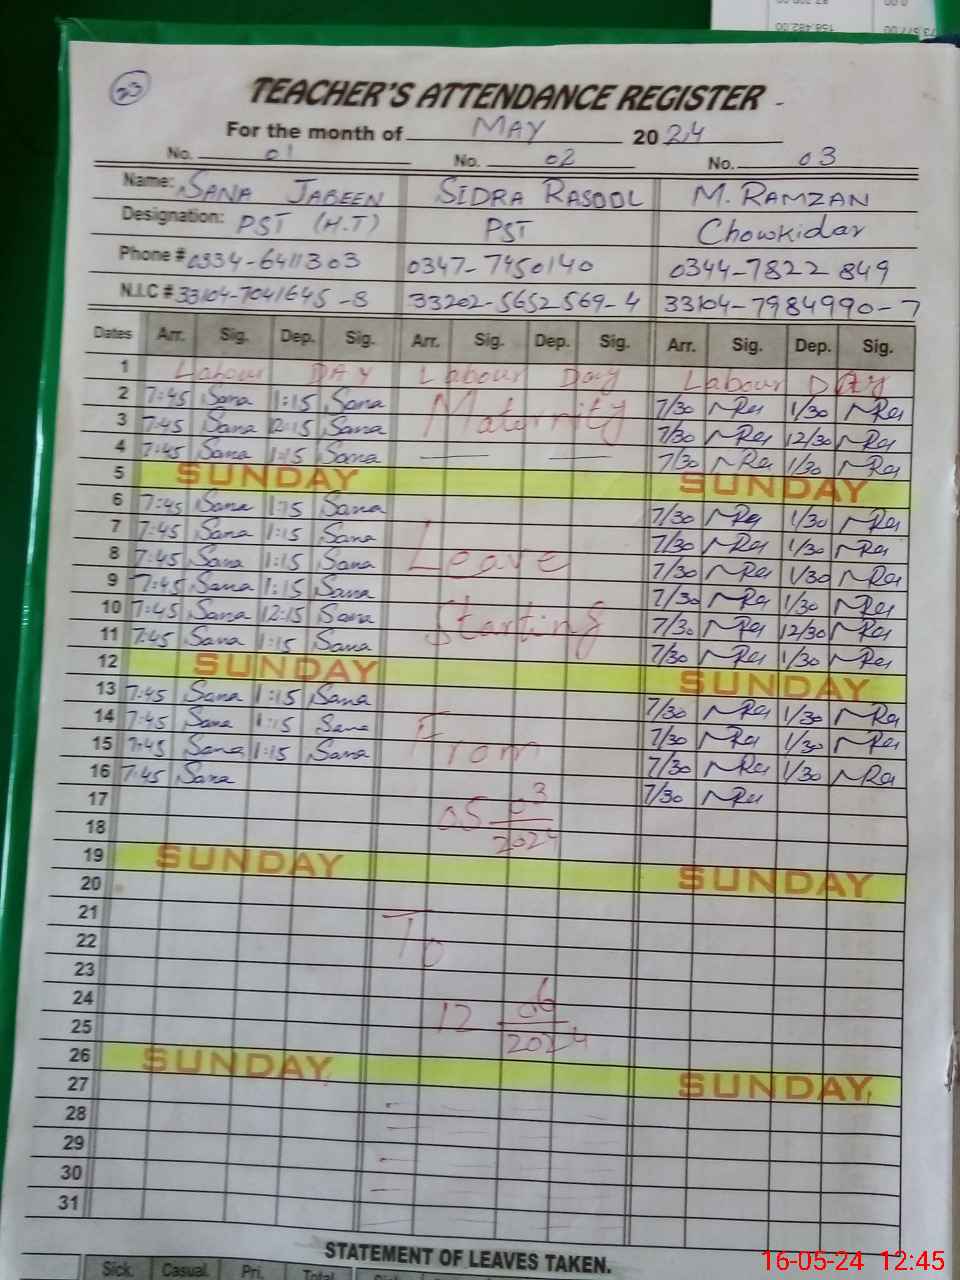 23
TEACHER'S ATTENDANCE REGISTER
For the month of MAY 2024
No. 01 No. 02 No. 03
Name: SANA JABEEN SIDRA RASOOL M. RAMZAN
Designation: PST (H.T) PST Chowkidar
Phone # 0334-6411303 0347-7450140 0344-7822849
N.I.C # 33104-7041645-8 33202-5652569-4 33104-7984990-7
Dates Arr. Sig. Dep. Sig. Arr. Sig. Dep. Sig. Arr. Sig. Dep. Sig.
1 Labour DAY Labour Day Labour DAy
2 7:45 Sana 1:15 Sana Maternity 7/30 1/30
3 7:45 Sana 12:15 Sana 7/30 12/30
4 7:45 Sana 1:15 Sana 7/30 1/30
5 SUNDAY SUNDAY
6 7:45 Sana 1:15 Sana 7/30 1/30
7 7:45 Sana 1:15 Sana 7/30 1/30
8 7:45 Sana 1:15 Sana Leave 7/30 1/30
9 7:45 Sana 1:15 Sana 7/30 1/30
10 7:45 Sana 12:15 Sana Starting 7/30 12/30
11 7:45 Sana 1:15 Sana 7/30 1/30
12 SUNDAY SUNDAY
13 7:45 Sana 1:15 Sana 7/30 1/30
14 7:45 Sana 1:15 Sana From 7/30 1/30
15 7:45 Sana 1:15 Sana 7/30 1/30
16 7:45 Sana 7/30
17 05 03
18 2024
19 SUNDAY SUNDAY
20
21 To
22
23
24 12 06
25 2024
26 SUNDAY SUNDAY
27
28
29
30
31
STATEMENT OF LEAVES TAKEN.
Sick. Casual. Pri. Total
16-05-24 12:45